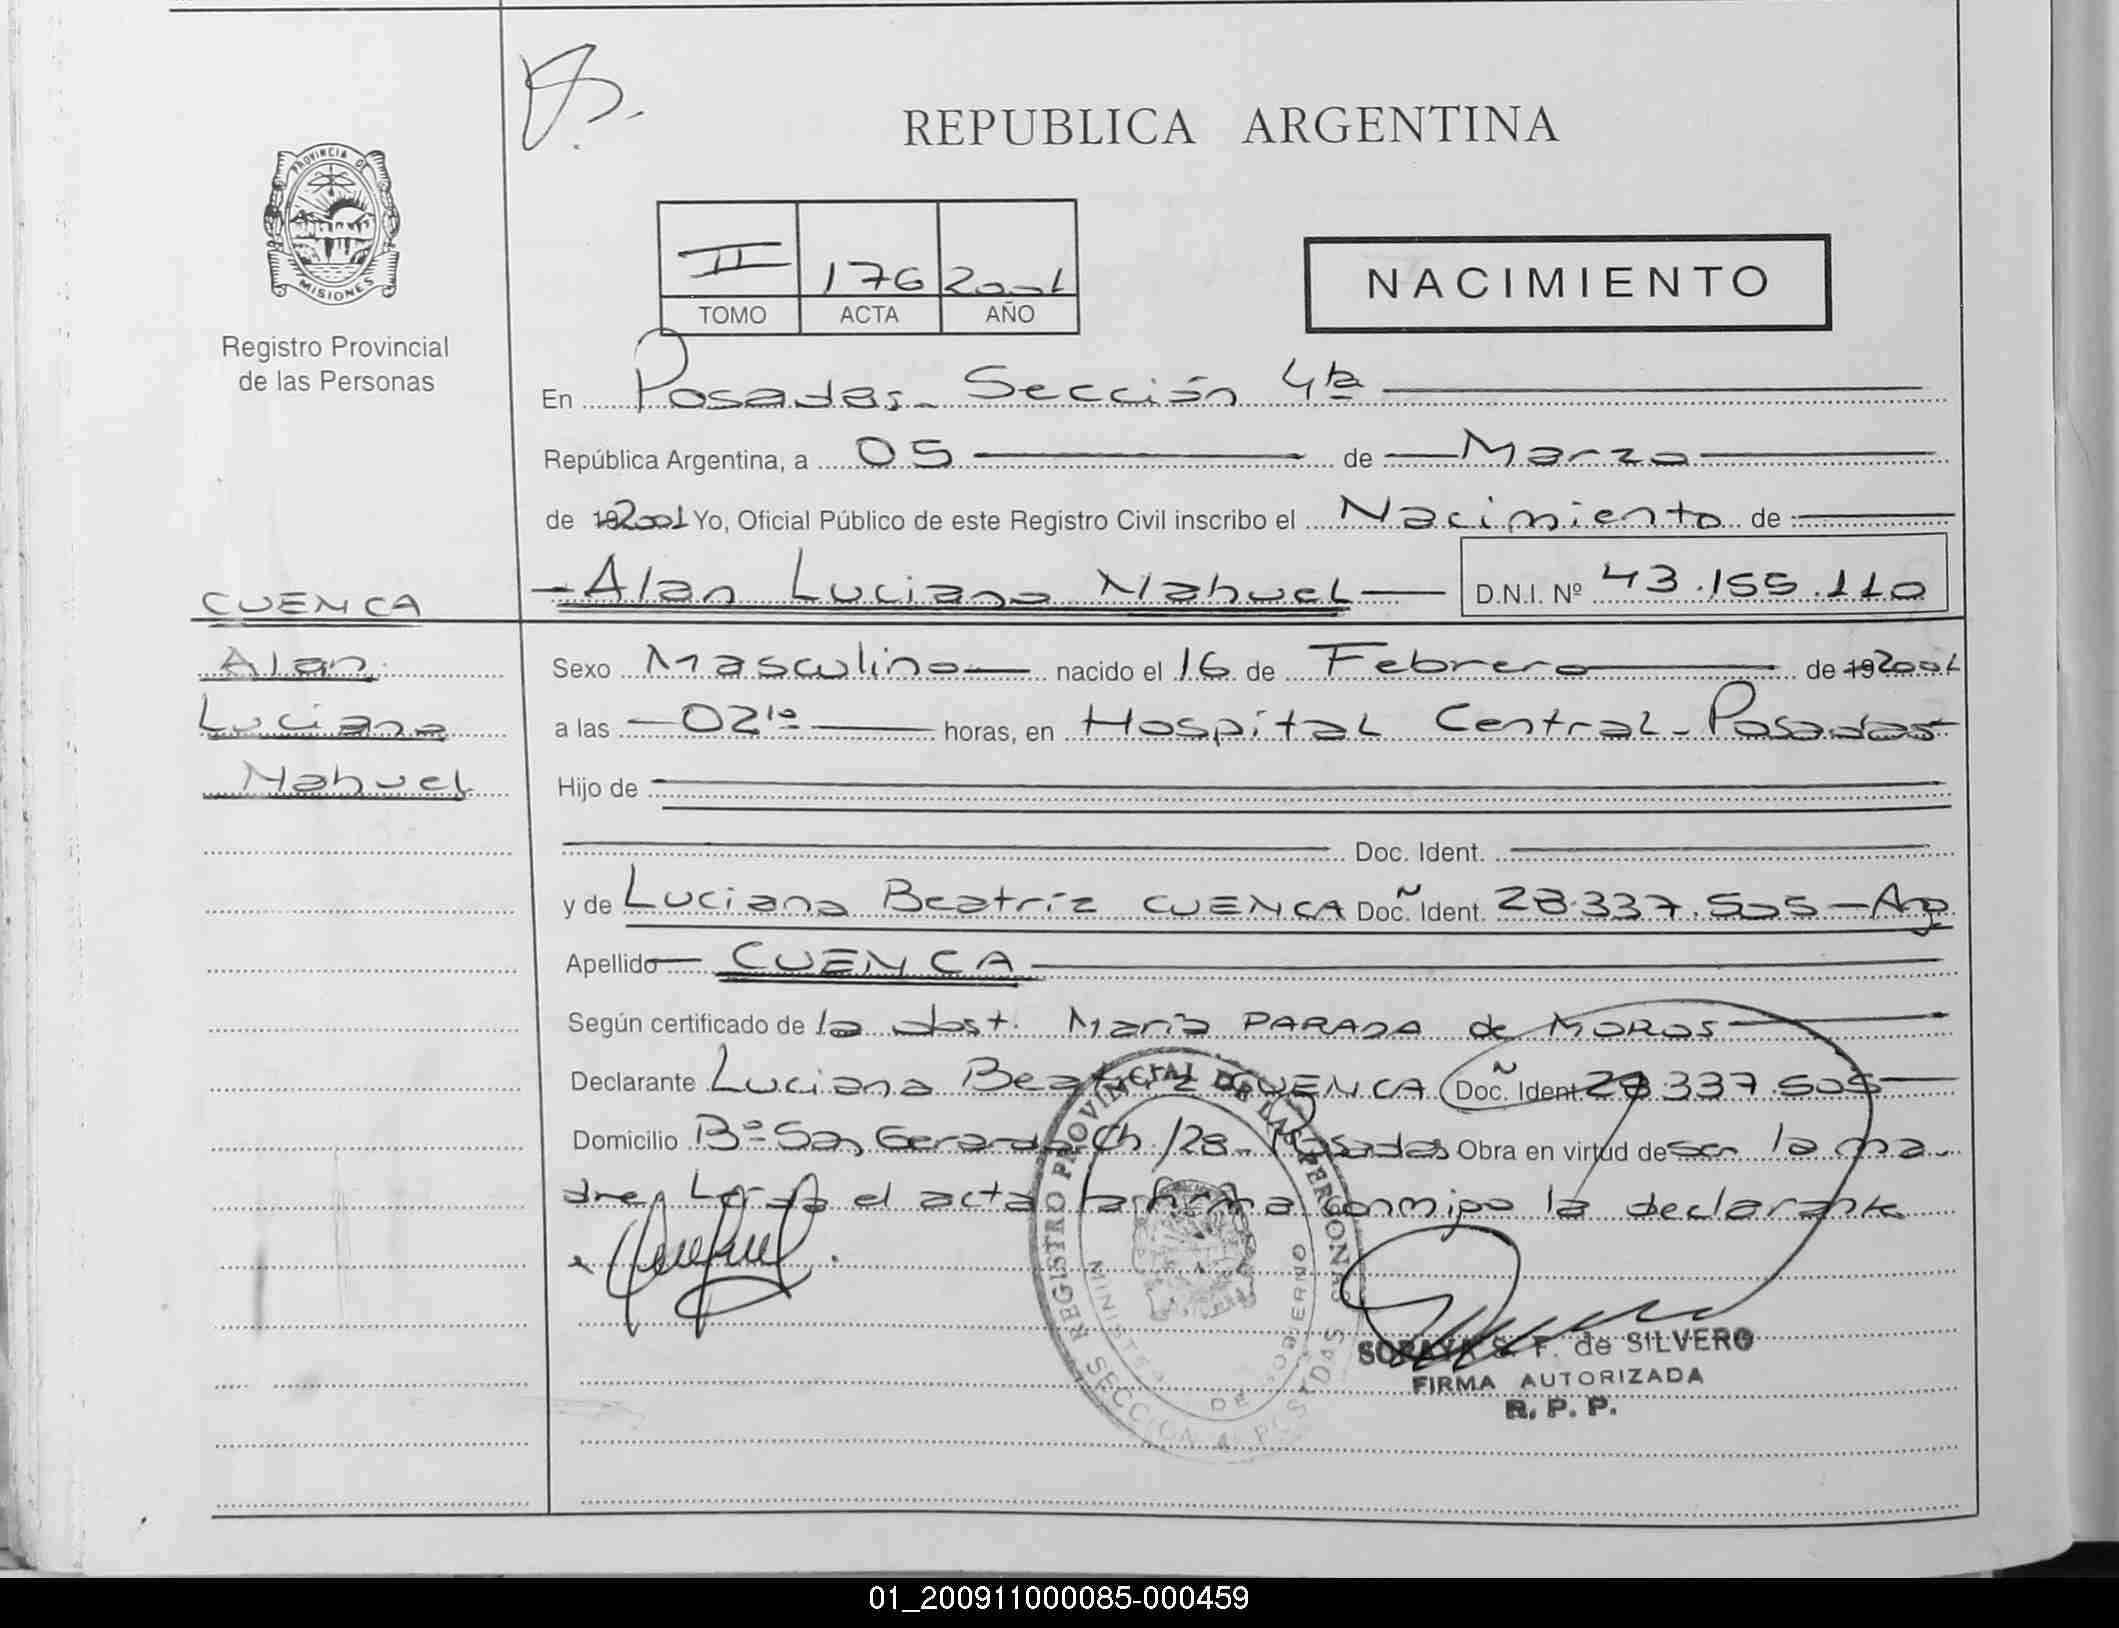 REPUBLICA ARGENTINA
PROVINCIA DE
MISIONES
Registro Provincial
de las Personas
II 176 2001
TOMO ACTA AÑO
NACIMIENTO
En Posadas - Sección 4ta
República Argentina, a 05 de Marzo
de 192001 Yo, Oficial Público de este Registro Civil inscribo el Nacimiento de
- Alan Luciano Nahuel - D.N.I. Nº 43.155.110
CUENCA
Alan
Luciano
Nahuel
Sexo Masculino nacido el 16 de Febrero de 192001
a las 02 horas, en Hospital Central - Posadas
Hijo de
Doc. Ident.
y de Luciana Beatríz CUENCA Doc. Ident. 28.337.505 - Arg
Apellido CUENCA
Según certificado de la obst. María PARADA de MOROS
Declarante Luciana Beatriz CUENCA Doc. Ident 28.337.505
Domicilio Bº San Gerardo Ch. 128 - Posadas Obra en virtud de ser la ma-
dre Leída el acta la firma conmigo la declarante
REGISTRO PROVINCIAL DE LAS PERSONAS
MINISTERIO DE GOBIERNO
SECCION 4 POSADAS
SORAYA S. F. de SILVERO
FIRMA AUTORIZADA
R. P. P.
01_200911000085-000459